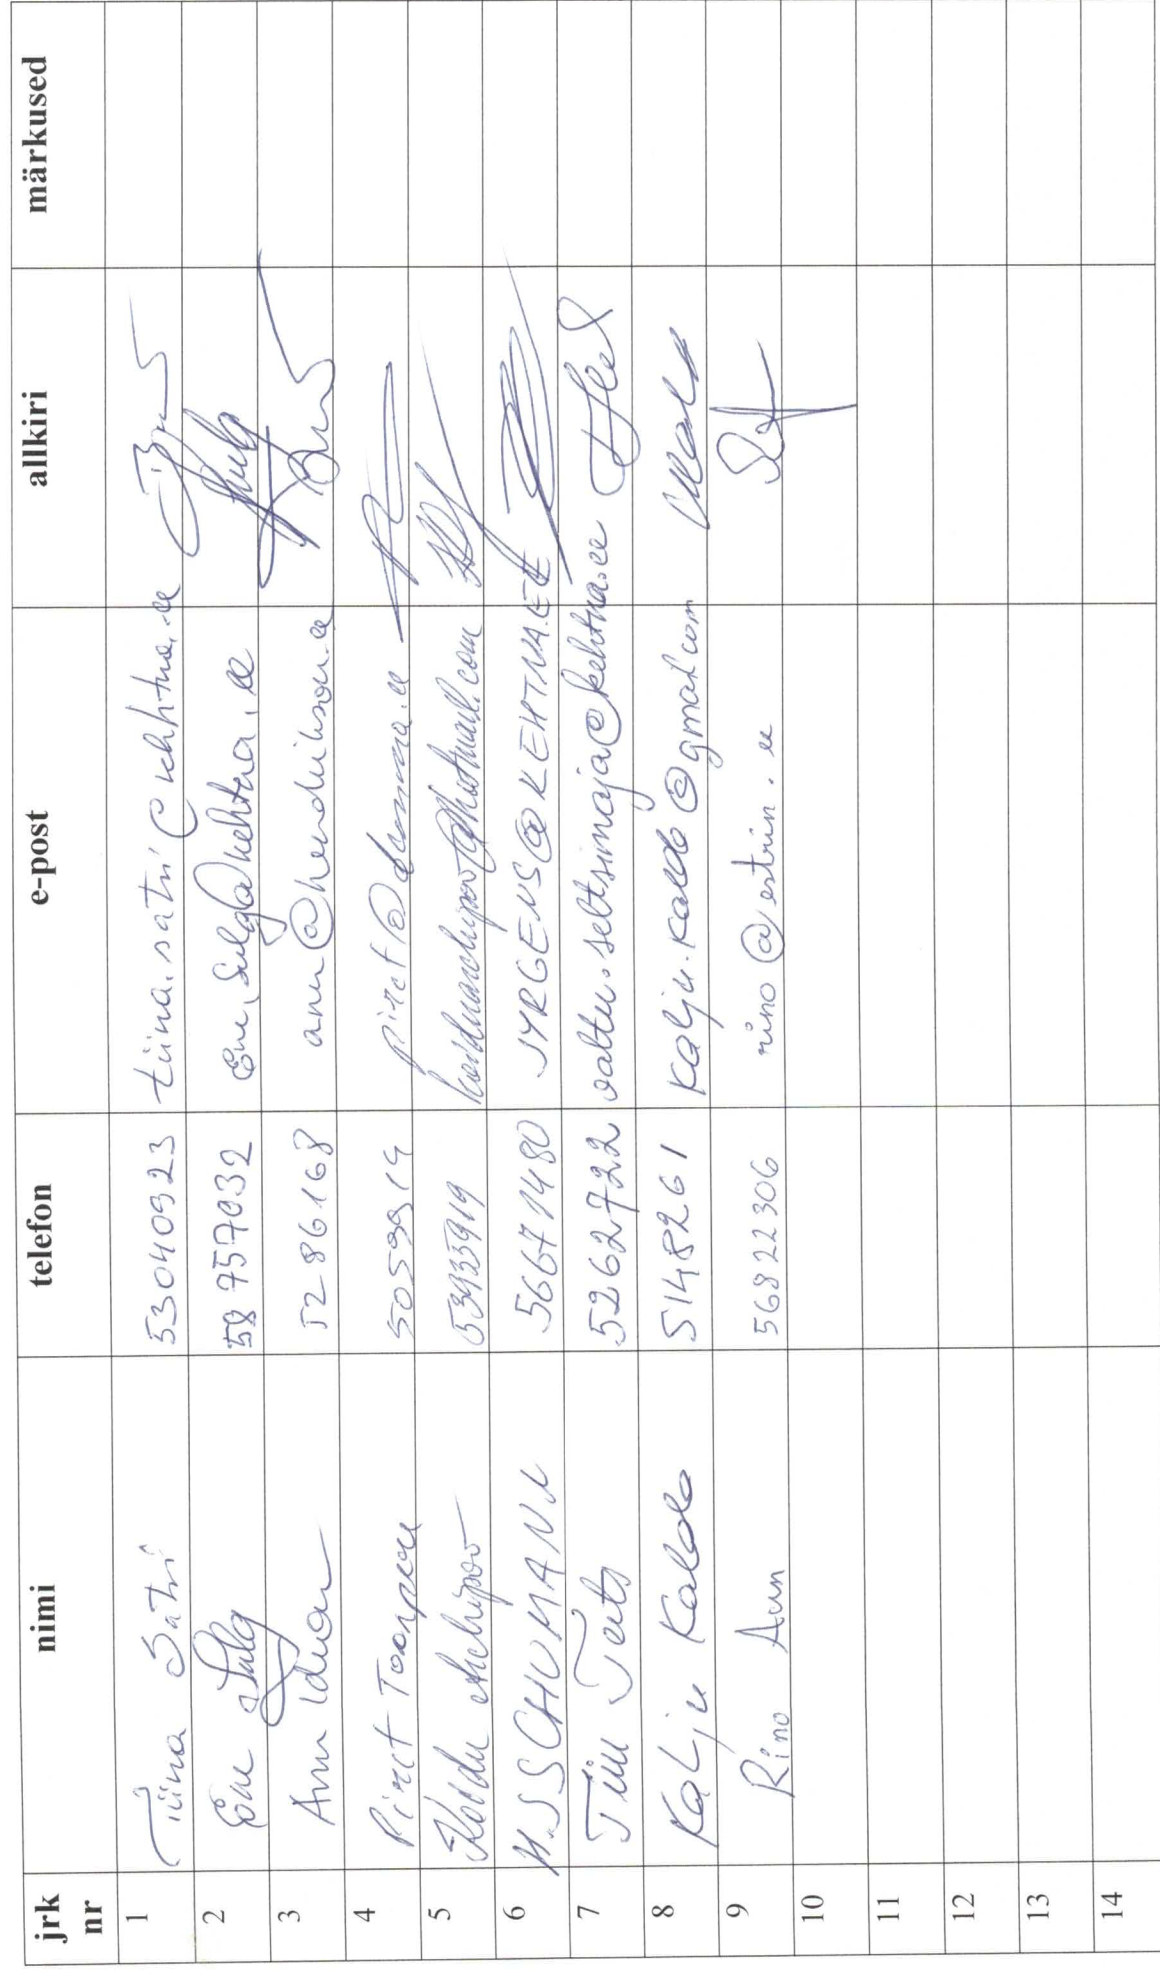 jrk nr nimi telefon e-post allkiri märkused
1 Tiina Sätri 53040923 tiina.satri@kehtna.ee
2 Ene Sulg 58757032 Ene.Sulg@kehtna.ee
3 Anu 5286168
4 Piret Toonpere 5059914 piret@
5 Koidu Archipov 53935919 koiduarchipov@hotmail.com
6 H.SSCHUMANN 56671480 JYRGENS@KEHTNA.EE
7 Tiiu Teets 5262722 valtu.seltsimaja@kehtna.ee
8 Kalju Kaldo 5148261 kalju.kaldo@gmail.com
9 Rino Aun 56822306 rino@estrin.ee
10
11
12
13
14